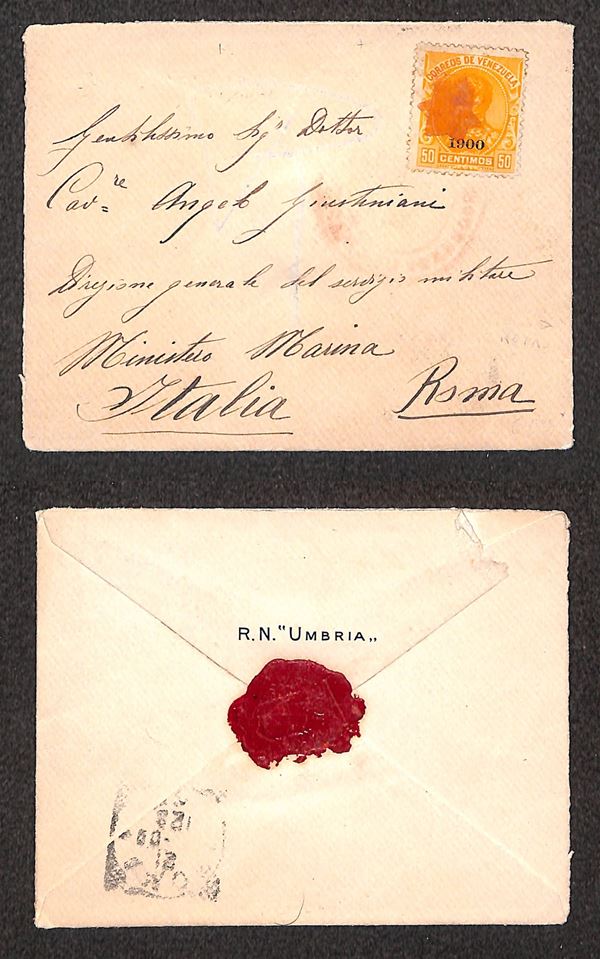 CORREOS DE VENEZUELA
1900
50 CENTIMOS 50
Gentilissimo Sigr Dottor
Cavre Angelo Giustiniani
Direzione generale del servizio militare
Ministero Marina
Italia Roma
R.N. "UMBRIA„